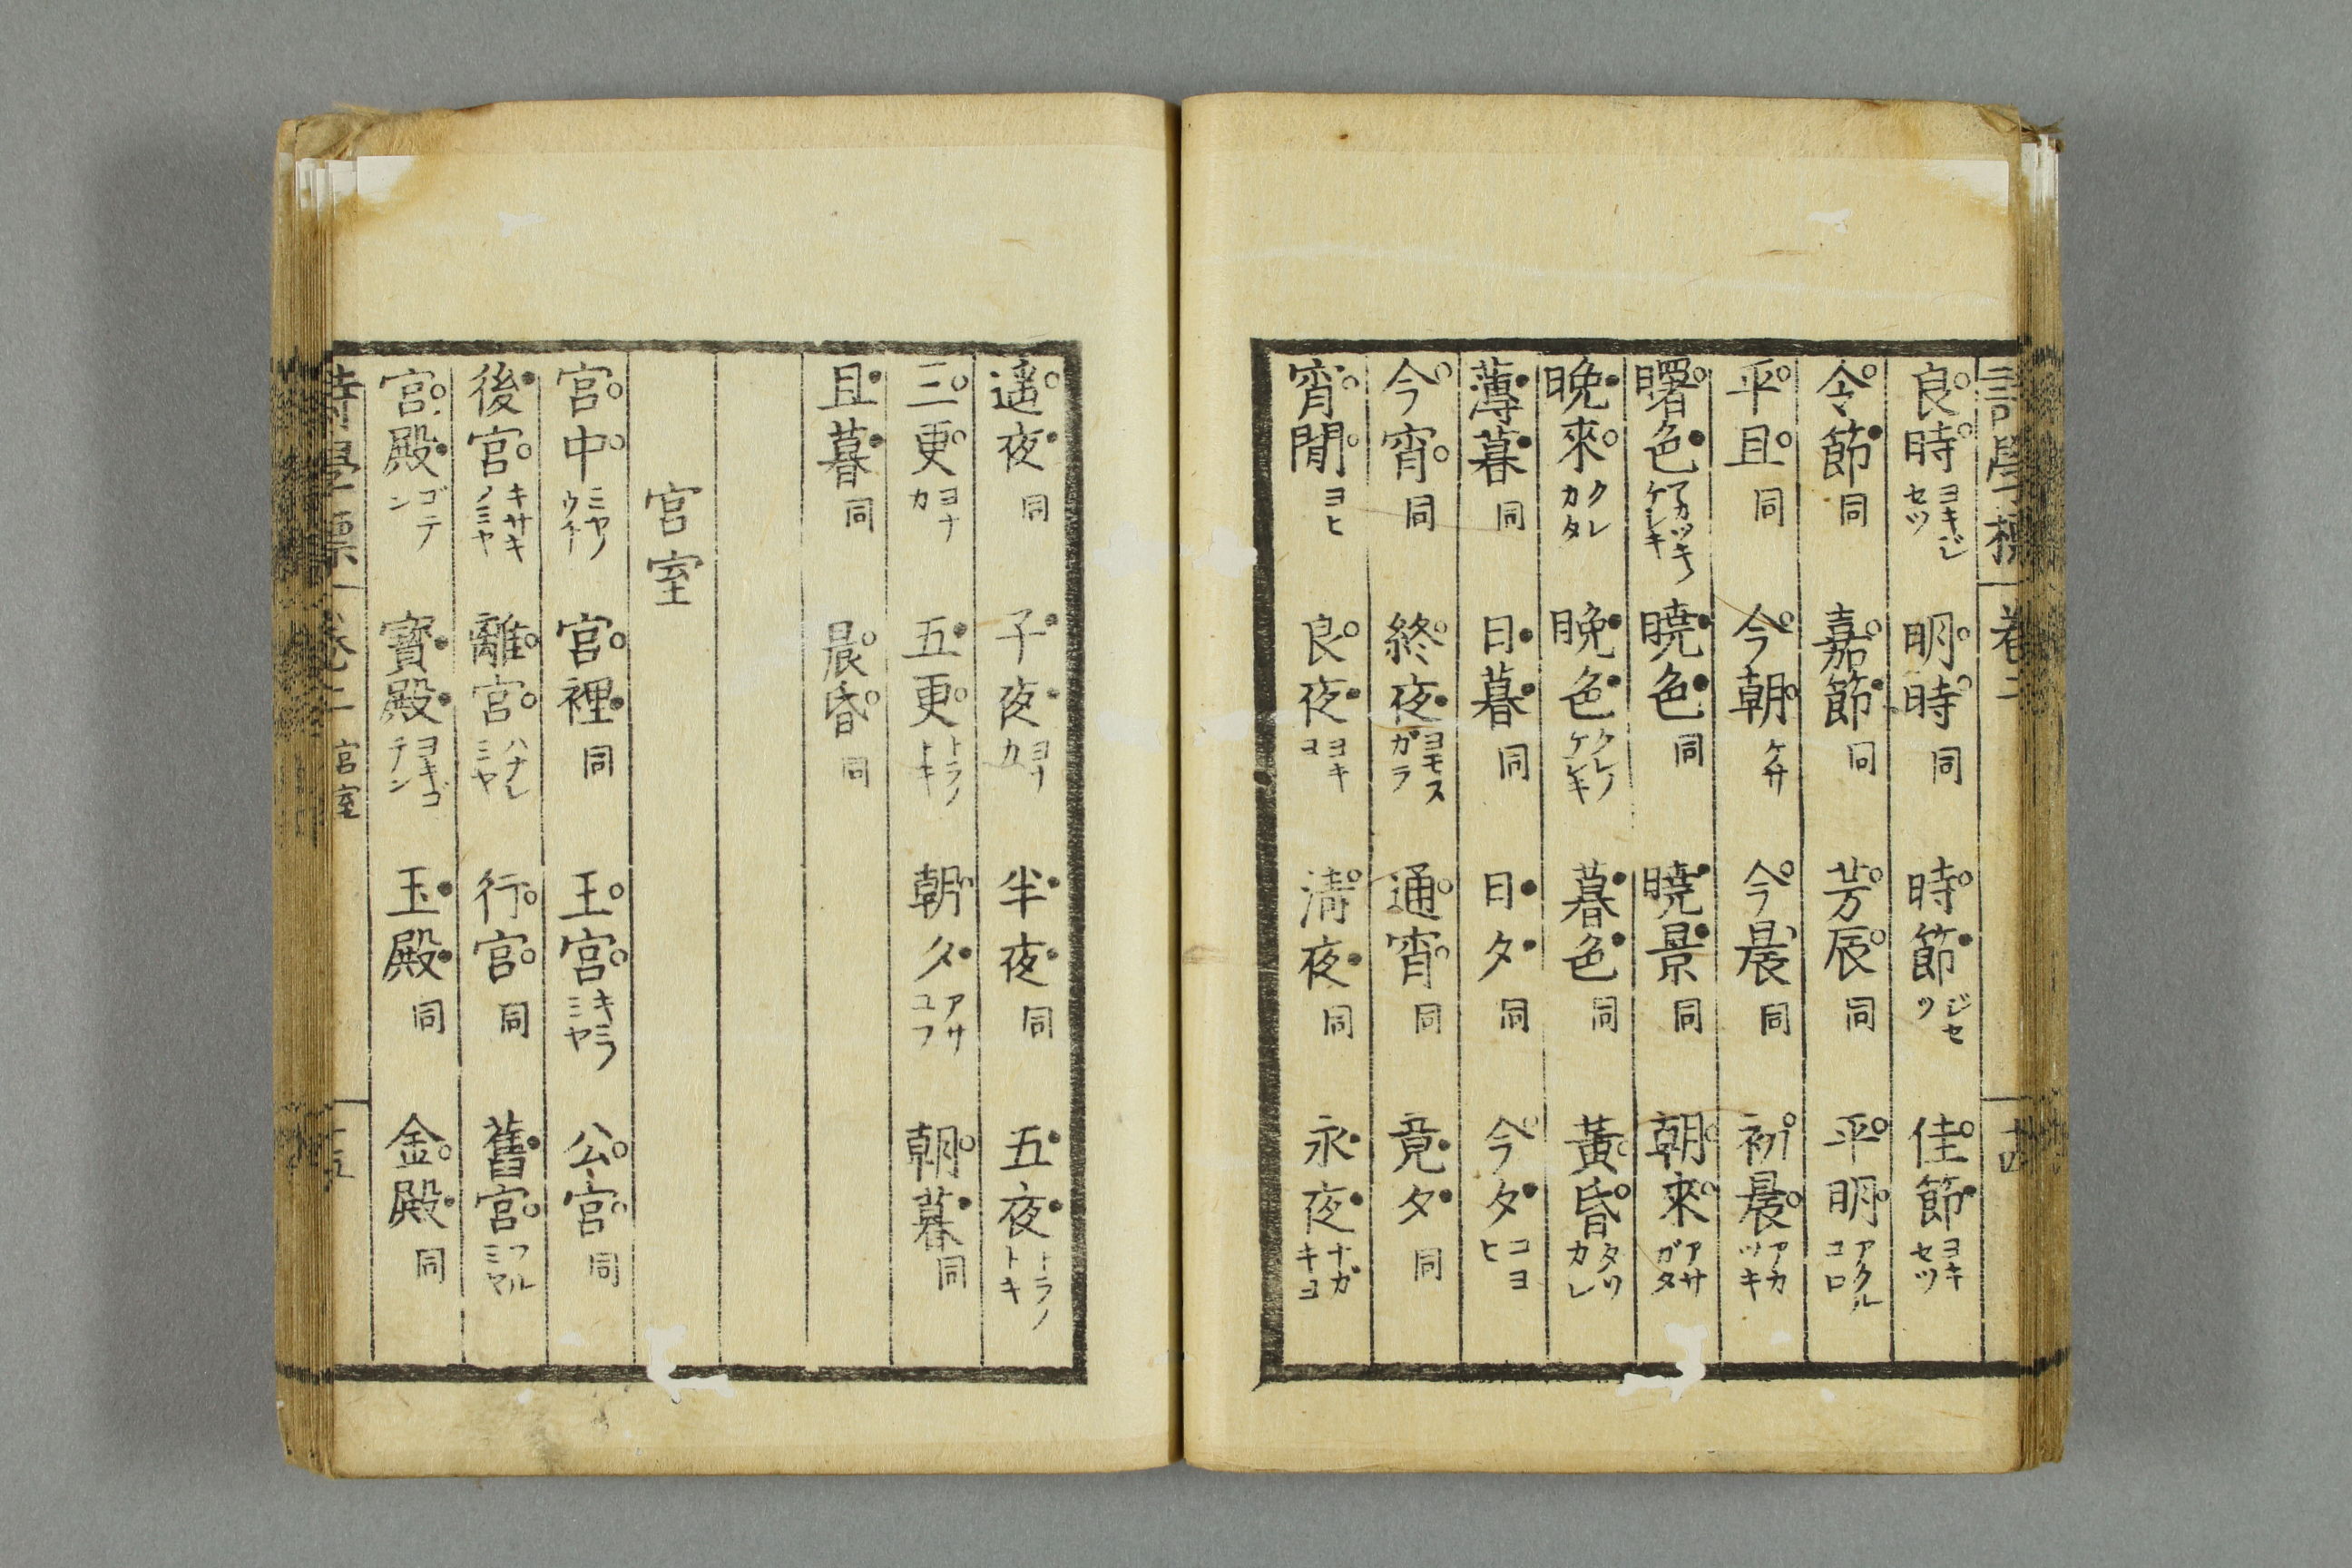 詩學標 卷二 十四
良時ヨキジセツ 明時同 時節ジセツ 佳節ヨキセツ
令節同 嘉節同 芳辰同 平明アクルコロ
平旦同 今朝ケサ 今晨同 初晨アカツキ
曙色アカツキノケシキ 曉色同 曉景同 朝來アサガタ
晩來クレカタ 晩色クレノケシキ 暮色同 黃昏タソカレ
薄暮同 日暮同 日夕同 今夕コヨヒ
今宵同 終夜ヨモスガラ 通宵同 竟夕同
宵間ヨヒ 良夜ヨキヨ 淸夜同 永夜ナガキヨ
遥夜同 子夜ヨナカ 半夜同 五夜トラノトキ
三更ヨナカ 五更トラノトキ 朝夕アサユフ 朝暮同
旦暮同 晨昏同
宮室
宮中ミヤノウチ 宮裡同 王宮キミノミヤ 公宮同
後宮キサキノミヤ 離宮ハナレミヤ 行宮同 舊宮フルミヤ
宮殿ゴテン 寳殿ヨキゴテン 玉殿同 金殿同
詩學標 卷二 宮室 十五